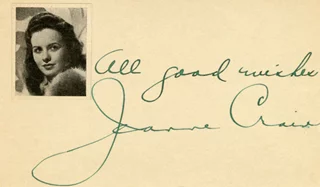 All good wishes
Jeanne Crain